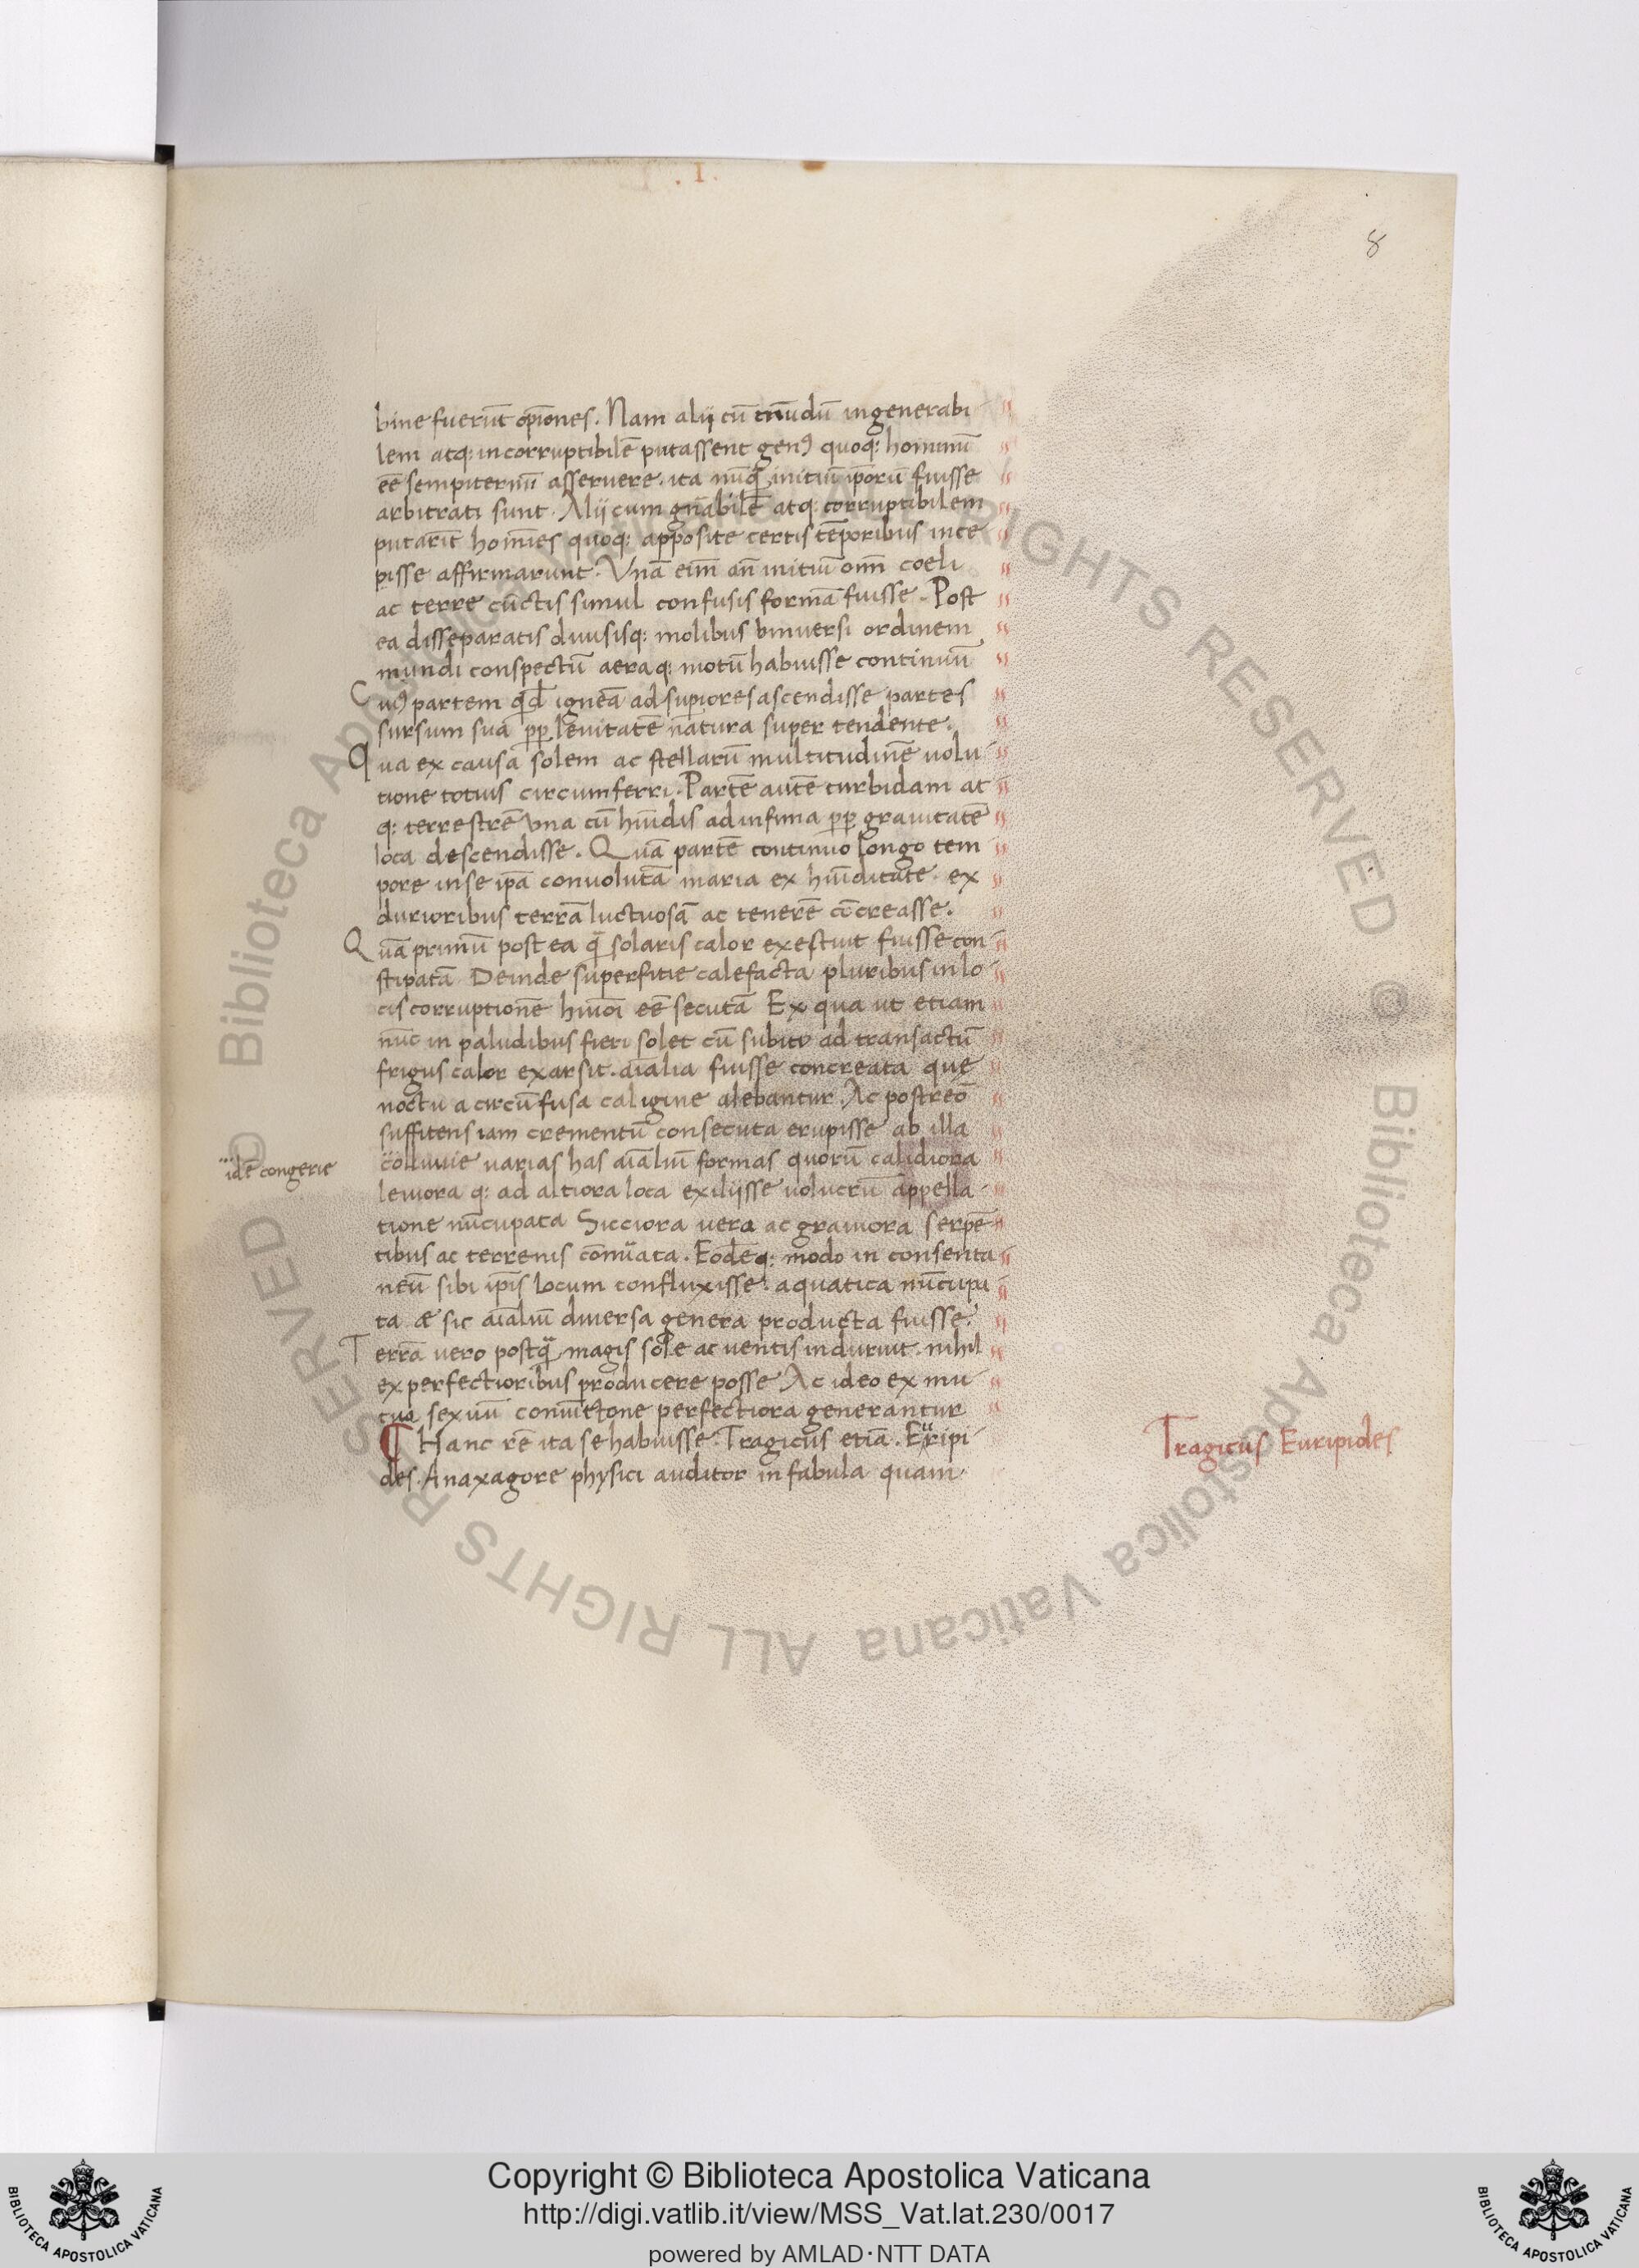 .I.
8
bine fuerūt opīones. Nam alij cū mūdū ingenerabi
lem atq: incorruptibilē putassent genꝰ quoq: hominū
eē sempiternū asseruere. ita nūq̄ initiū ip̄orū fuisse
arbitrati sunt. Alij cum gn̄abilē atq: corruptibilem
putarīt homīes quoq: apposite certis tēporibus ince
pisse affirmarunt. Vnā eīm an̄ initiū om̄ coeli
ac terre cūctis simul confusis formā fuisse. Post
ea disseparatis diuisisq: molibus vniuersi ordinem
mundi conspectū aera q: motū habuisse continuū
Cuiꝰ partem qd̄ igneā ad supiores ascendisse partes
sursum sua pp̄ leuitatē natura super tendente.
Qua ex causa solem ac stellarū multitudinē uolu
tione totius circumferri. Partē autē turbidam at
q: terrestrē vna cū hūidis ad infima pp̄ grauitatē
loca descendisse. Quā partē continuo longo tem
pore in se ip̄ā conuolutā maria ex hūiditate. ex
durioribus terrā luctuosā ac tenerē cōcreasse.
Quā primū post ea q̄ solaris calor exestuit fuisse con
stipatā Deinde superfitie calefacta pluribus in lo
cis corruptionē hūoī eē secutā Ex qua ut etiam
nūc in paludibus fieri solet cū subito ad transactū
frigus calor exarsit. aīalia fuisse concreata que
noctu a circūfusa caligine alebantur. Ac postreō
suffitens iam crementū consecuta erupisse ab illa
colluuie uarias has aīaliū formas quorū calidiora
leuiora q: ad altiora loca exilijsse uolucrū appella
tione nūcupata Sicciora uera ac grauiora serpē
tibus ac terrenis cōnūata. Eodēq: modo in consenta
neū sibi ip̄is locum confluxisse: aquatica nūcupa
ta æ sic aīaliū diuersa genera producta fuisse.
Terrā uero postq̄ magis sole ac uentis induruit. nihil
ex perfectioribus producere posse Ac ideo ex mu
tua sexuū coniūctone perfectiora generantur
Hanc rē ita se habuisse. Tragicus etiā. Euripi
des. Anaxagore physici auditor in fabula quam
idē congerie
Tragicus Euripides
Copyright © Biblioteca Apostolica Vaticana
http://digi.vatlib.it/view/MSS_Vat.lat.230/0017
powered by AMLAD·NTT DATA
BIBLIOTECA APOSTOLICA VATICANA
BIBLIOTECA APOSTOLICA VATICANA
© Biblioteca Apostolica Vaticana ALL RIGHTS RESERVED
© Biblioteca Apostolica Vaticana ALL RIGHTS RESERVED